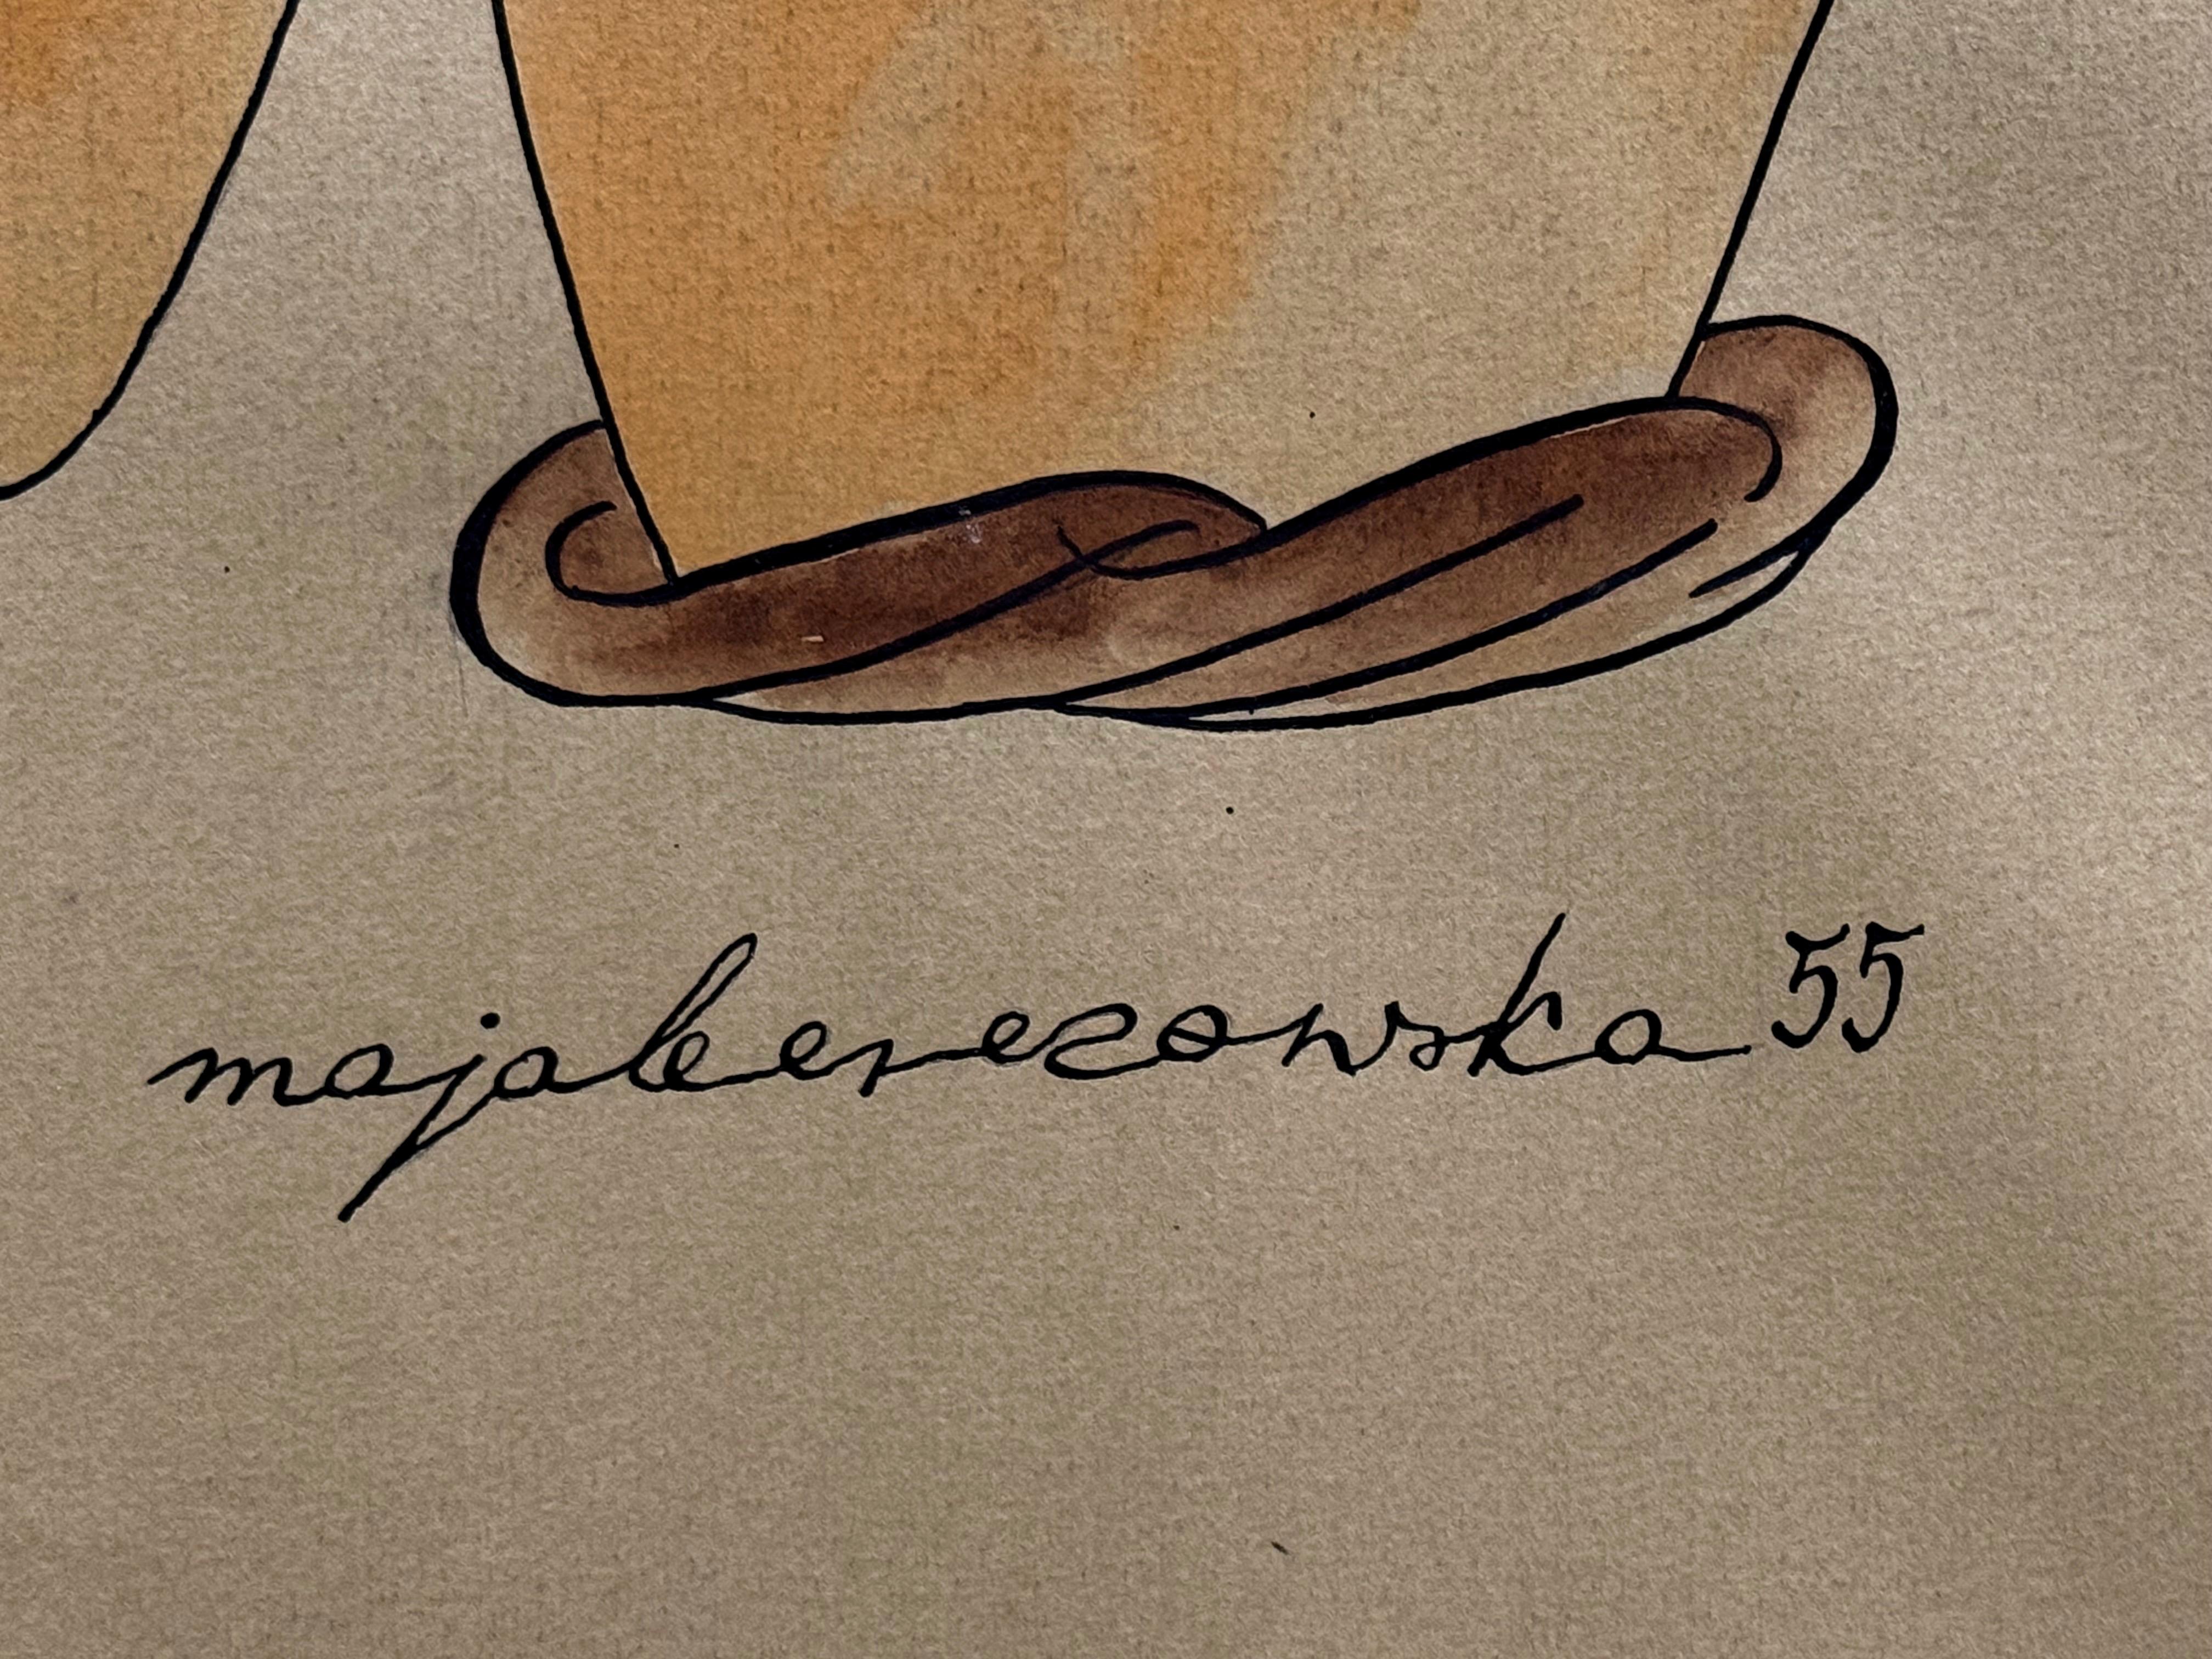 majaberezowska 55